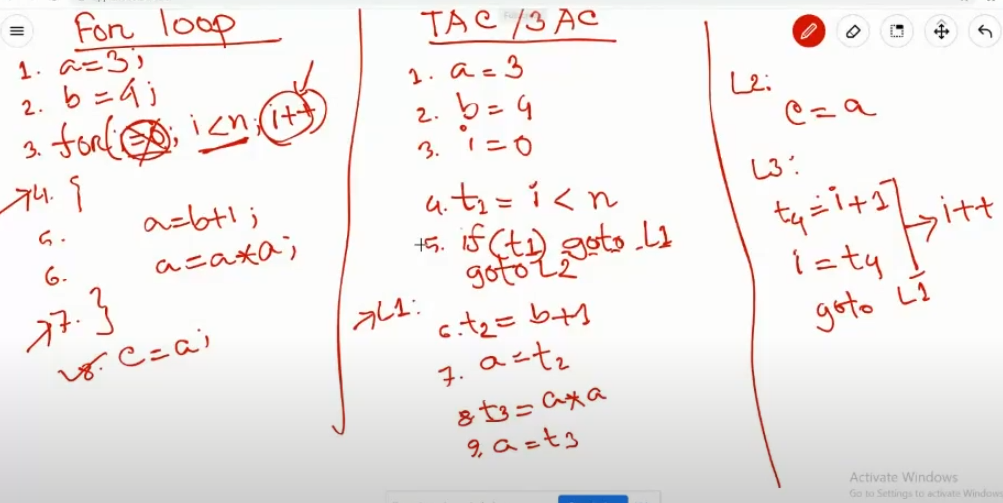 For loop
1. a=3;
2. b=4;
3. for(i=0; i<n; i++)
4. {
5. a=b+1;
6. a=a*a;
7. }
8. c=a;
TAC/3AC
1. a=3
2. b=4
3. i=0
4. t1 = i < n
5. if(t1) goto L1
goto L2
L1:
6. t2 = b+1
7. a=t2
8 t3=a*a
9. a=t3
L2:
c=a
L3:
t4=i+1 i++
i=t4
goto L1
Activate Windows
Go to Settings to activate Windows